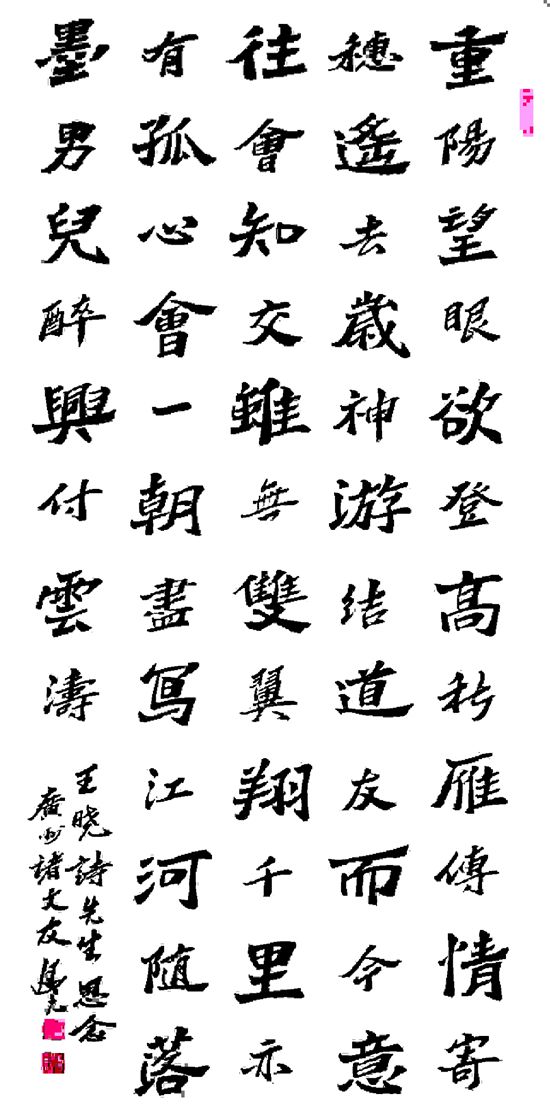 重陽望眼欲登高秋雁傳情寄
穗遙去歲神游结道友而今意
往會知交雖無雙翼翔千里亦
有孤心會一朝盡寫江河随落
墨男兒醉興付雲濤
王晓詩先生思念
廣州諸文友